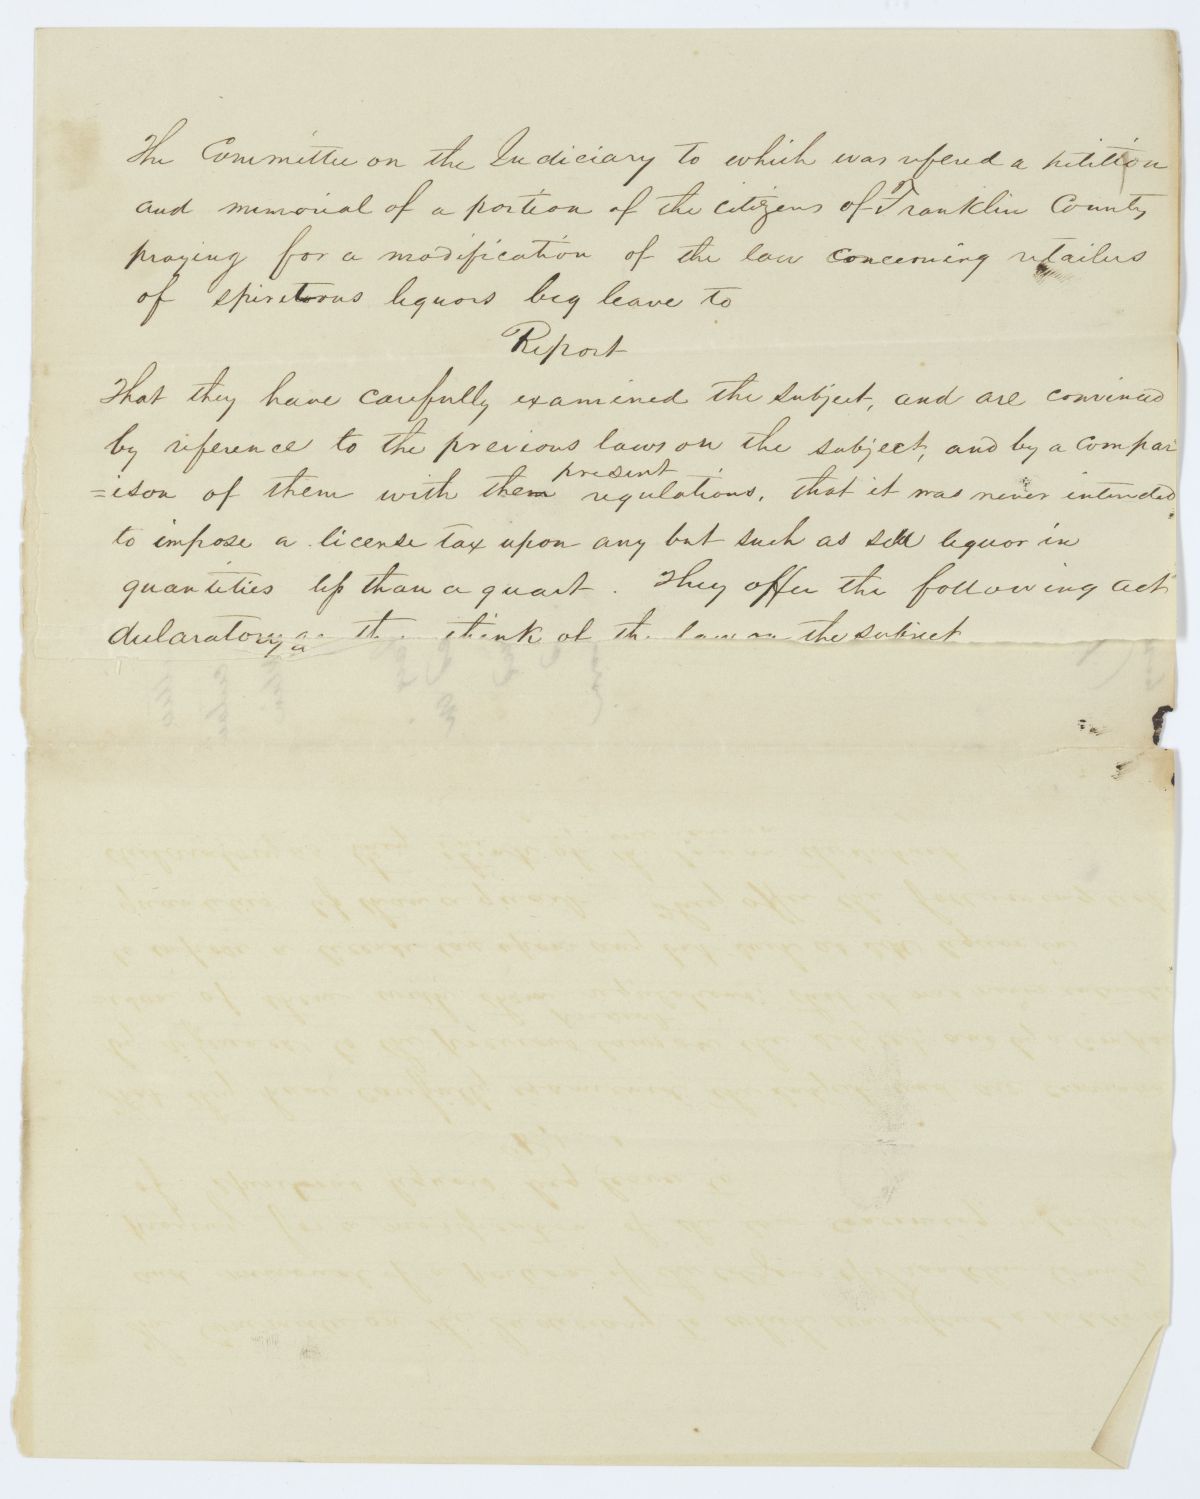 The Committee on the Judiciary to which was refered a petition
and memorial of a portion of the citizens of Franklin County
praying for a modification of the law concerning retailers
of spiritous liquors beg leave to
Report
That they have carefully examined the subject, and are convinced
by reference to the previous laws on the subject, and by a compar
=ison of them with them present regulations, that it was never intended
to impose a license tax upon any but such as sell liquor in
quantities less than a quart. They offer the following act
declaratory as they think of the law on the subject